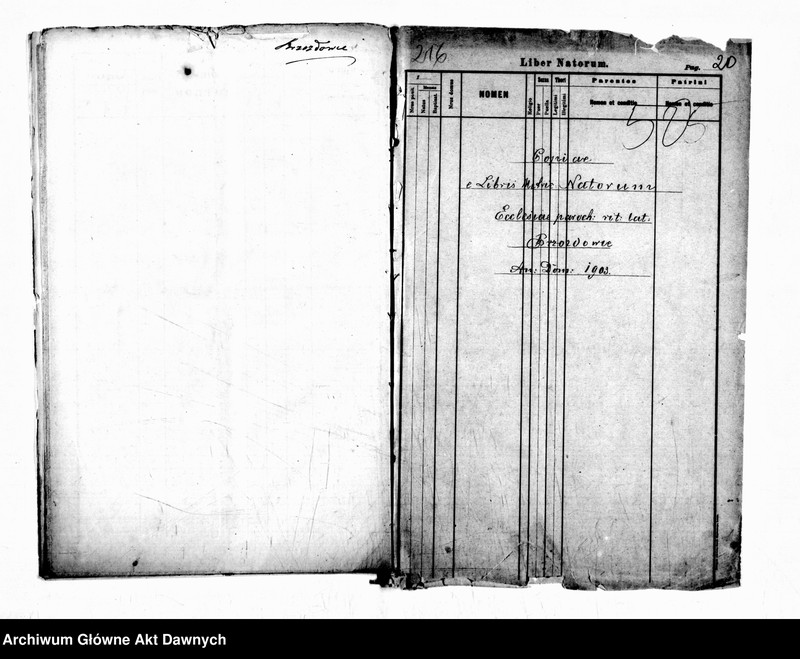 Brzozdowce
216
Liber Natorum.
Pag. 20
Mensis
Numerus domus
NOMEN
Religio
Sexus
Puer
Puella
Thori
Legitimi
Illegitimi
Parentes
Nomen et conditio
Patrini
Nomen et conditio
Natus
Copiae
e Libris Metric Natorum
Ecclesiae paroch: rit. lat.
Brzozdowce
An: Dom: 1903.
Archiwum Główne Akt Dawnych